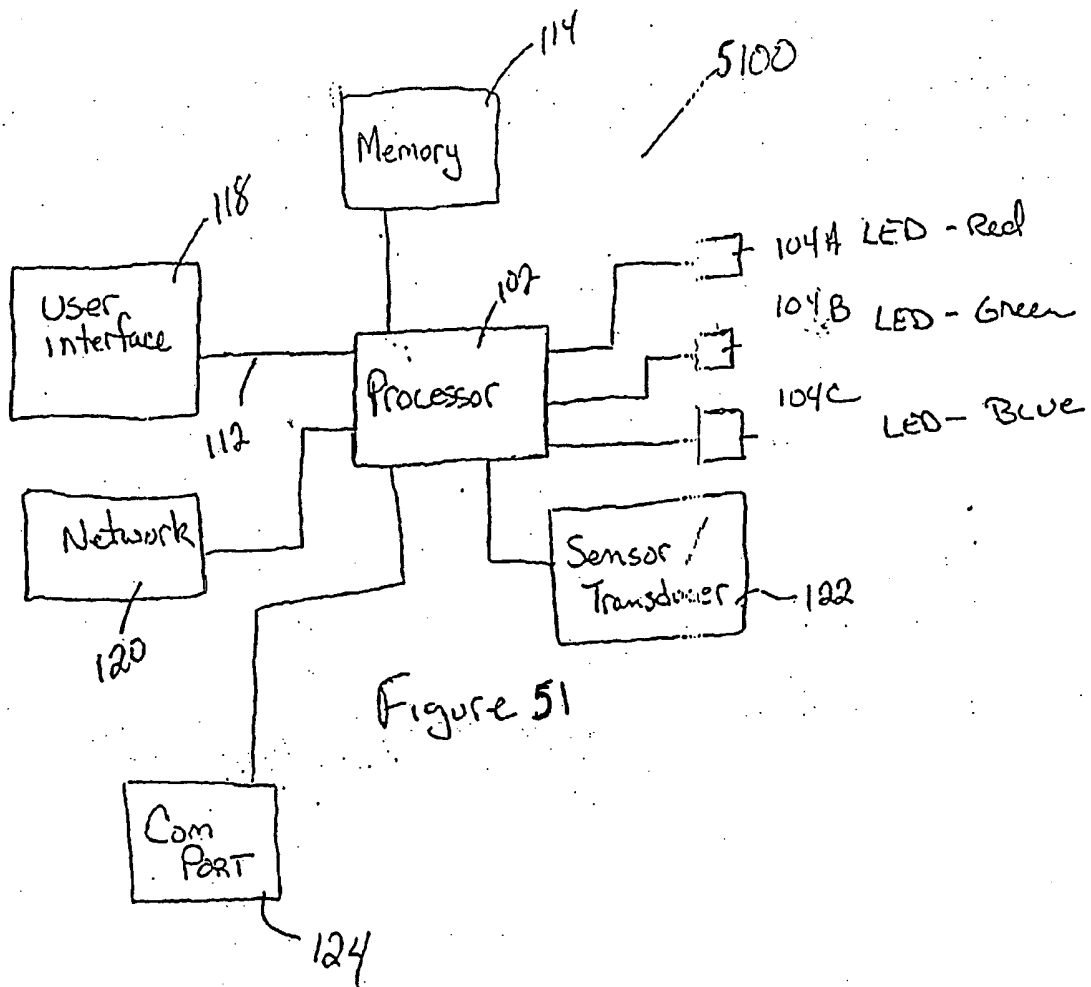 114
5100
Memory
118
User
interface
102
Processor
104A LED - Red
104B LED - Green
104C LED - BLUE
112
Network
120
Sensor /
Transducer
122
Figure 51
Com
PORT
124